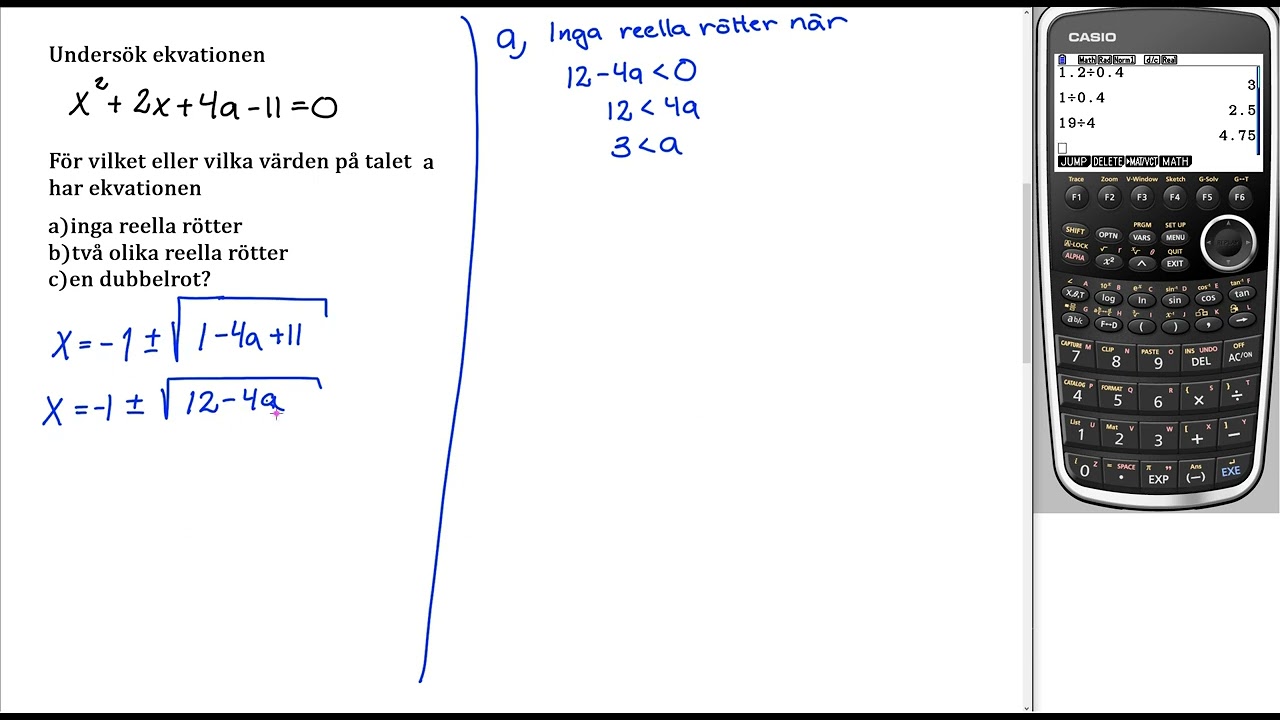 Undersök ekvationen
x² + 2x + 4a - 11 = 0
För vilket eller vilka värden på talet a
har ekvationen
a) inga reella rötter
b) två olika reella rötter
c) en dubbelrot?
X = -1 ± √(1 - 4a + 11
X = -1 ± √(12 - 4a
a, Inga reella rötter när
12 - 4a < 0
12 < 4a
3 < a
CASIO
Math Rad Norm1 d/c Real
1.2÷0.4
3
1÷0.4
2.5
19÷4
4.75
JUMP DELETE ▸MAT/VCT MATH
Trace Zoom V-Window Sketch G-Solv G↔T
F1 F2 F3 F4 F5 F6
PRGM SET UP
SHIFT OPTN VARS MENU
A-LOCK QUIT
ALPHA x² ^ EXIT
X,θ,T log ln sin cos tan
a b/c F↔D ( ) , →
CAPTURE M CLIP N PASTE O INS UNDO OFF
7 8 9 DEL AC/ON
CATALOG P FORMAT Q R { S } T
4 5 6 × ÷
List U Mat V W [ X ] Y
1 2 3 + −
i Z = SPACE π " Ans
0 . EXP (−) EXE